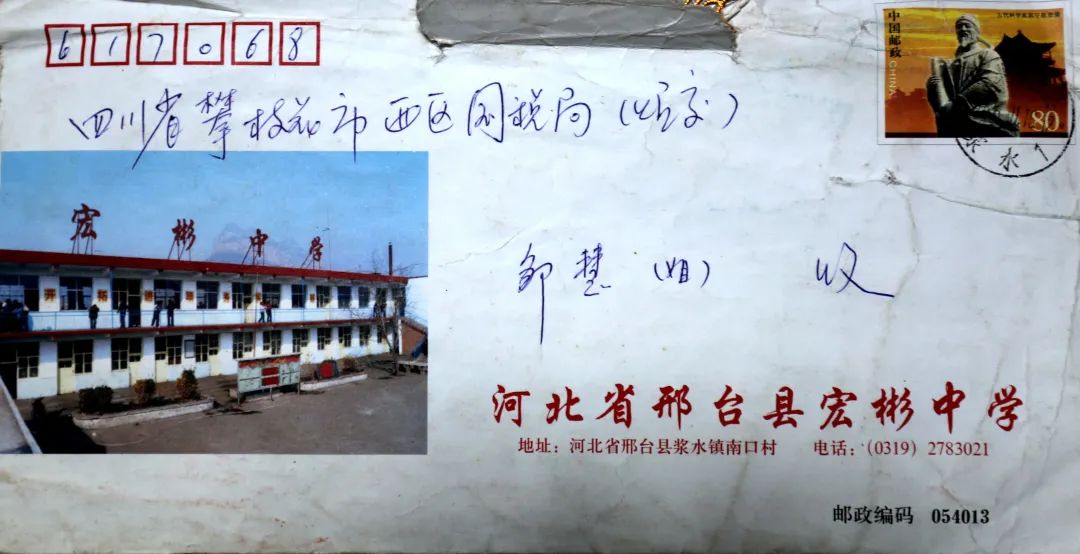 617068
中国邮政
CHINA
80
浆水
四川省攀枝花市西区国税局(烦交)
宏彬中学
开拓进
邹慧(姐) 收
河北省邢台县宏彬中学
地址：河北省邢台县浆水镇南口村 电话：(0319) 2783021
邮政编码 054013